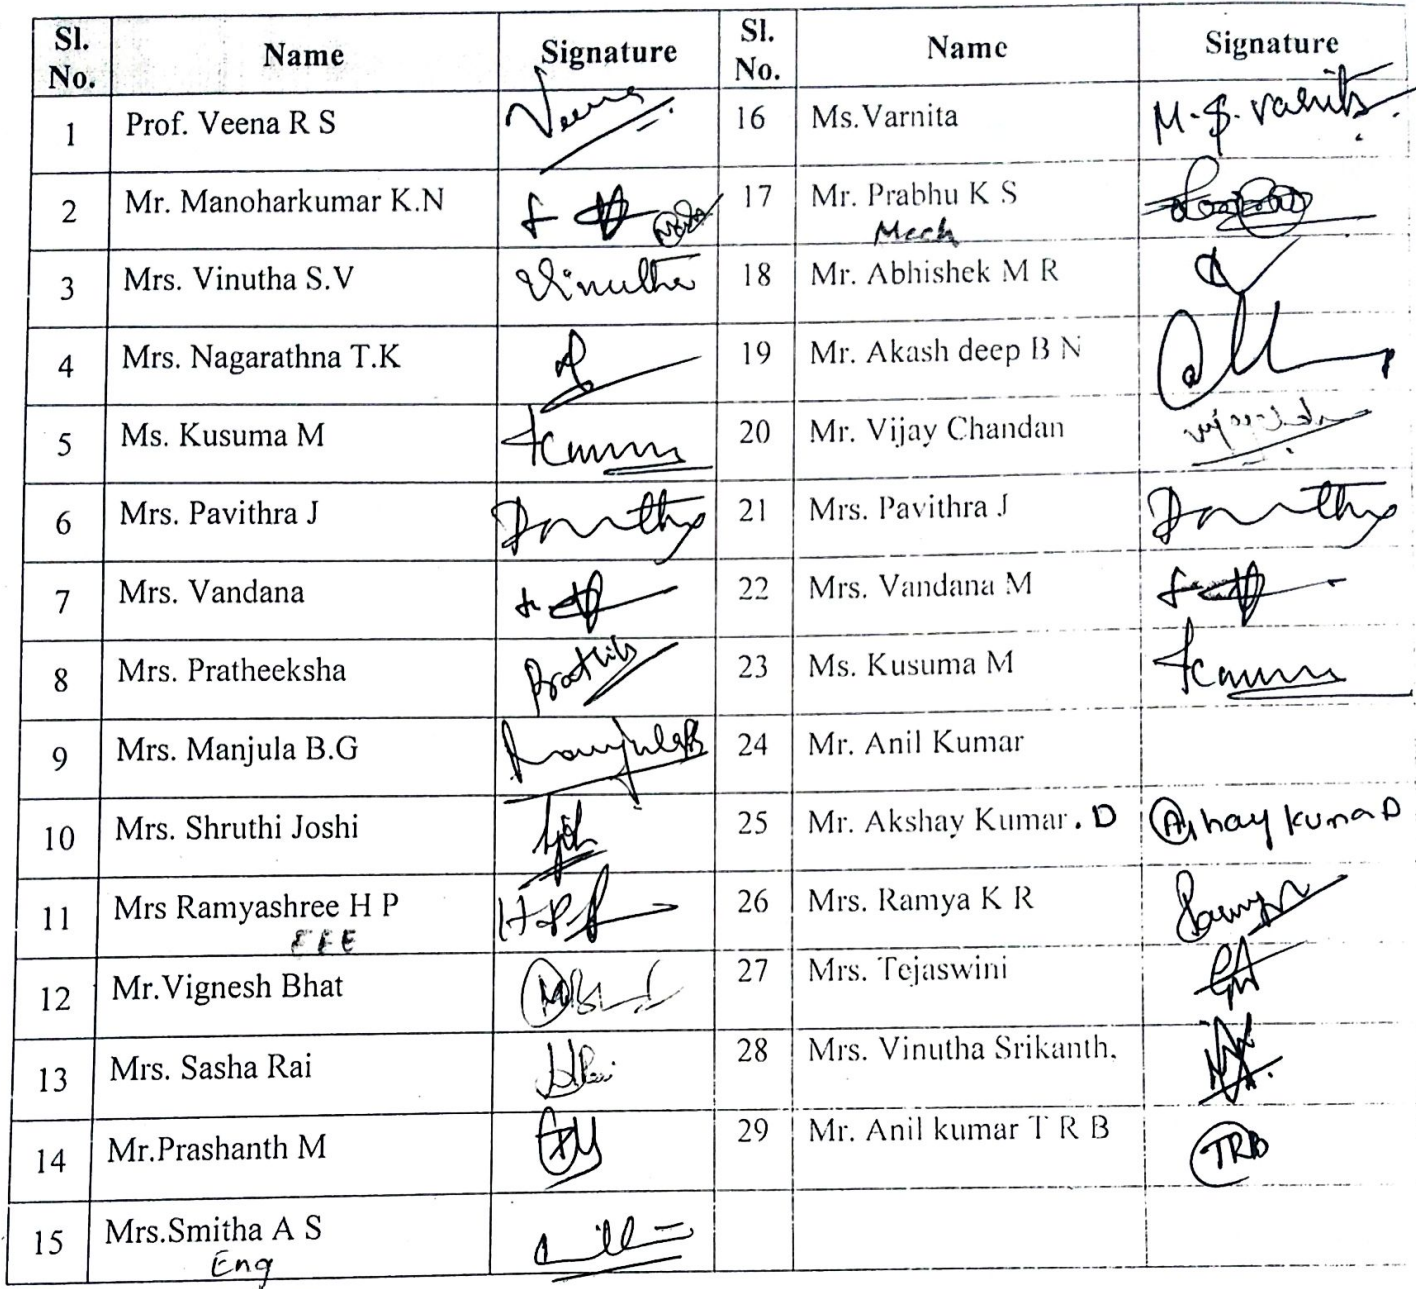 Sl. No. Name Signature Sl. No. Name Signature
1 Prof. Veena R S Veena 16 Ms.Varnita M.S. Varnita
2 Mr. Manoharkumar K.N 17 Mr. Prabhu K S
Mech
3 Mrs. Vinutha S.V Vinutha 18 Mr. Abhishek M R
4 Mrs. Nagarathna T.K 19 Mr. Akash deep B N
5 Ms. Kusuma M 20 Mr. Vijay Chandan
6 Mrs. Pavithra J 21 Mrs. Pavithra J
7 Mrs. Vandana 22 Mrs. Vandana M
8 Mrs. Pratheeksha 23 Ms. Kusuma M
9 Mrs. Manjula B.G 24 Mr. Anil Kumar
10 Mrs. Shruthi Joshi 25 Mr. Akshay Kumar . D
11 Mrs Ramyashree H P 26 Mrs. Ramya K R
EEE
12 Mr.Vignesh Bhat 27 Mrs. Tejaswini
13 Mrs. Sasha Rai 28 Mrs. Vinutha Srikanth.
14 Mr.Prashanth M 29 Mr. Anil kumar T R B TRB
15 Mrs.Smitha A S
Eng